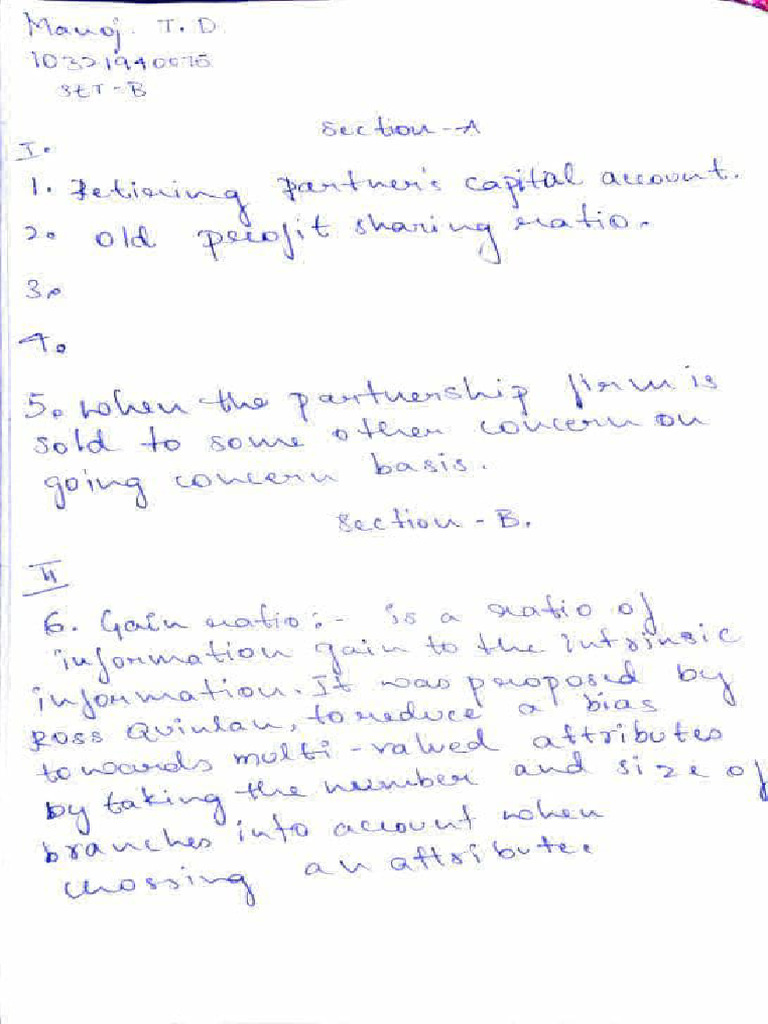 Manoj. T. D
SET - B
Section - A
I.
1. Retiering Partner's capital account.
2. old profit sharing ratio.
3.
4.
5. when the partnership firm is
sold to some other concern on
going concern basis.
Section - B.
II
6. Gain ratio :- is a ratio of
information gain to the intrinsic
information. It was proposed by
Ross Quinlan, to reduce a bias
towards multi-valued attributes
by taking the number and size of
branches into account when
chossing an attribute.